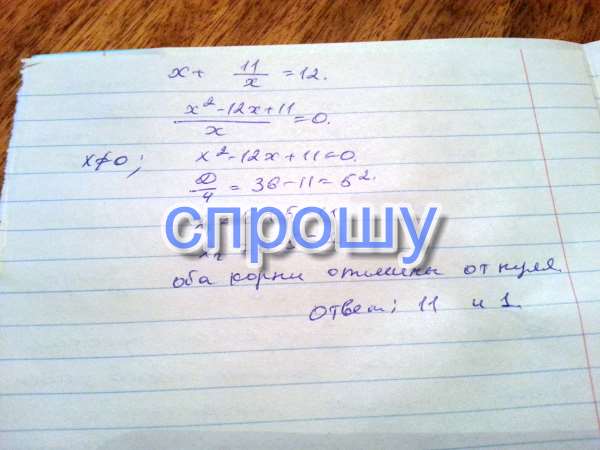 x + 11/x = 12.
x² - 12x + 11 / x = 0.
x ≠ 0; x² - 12x + 11 = 0.
D/4 = 36 - 11 = 5².
спрошу
оба корни отличны от нуля
Ответ: 11 и 1